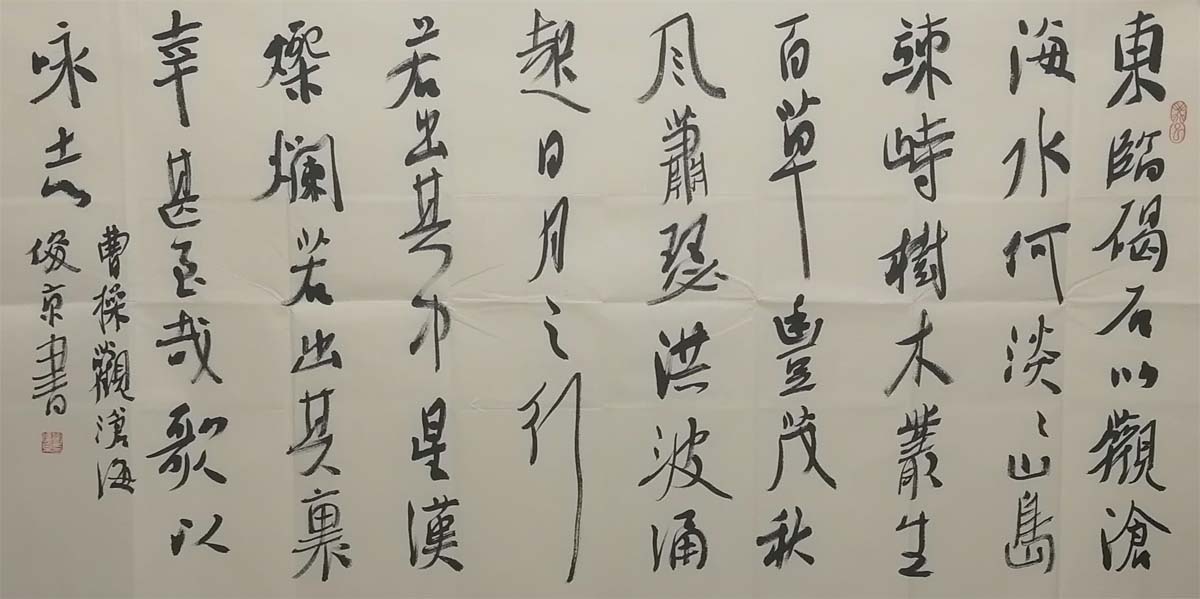 東臨碣石以觀滄
海水何淡〻山島
竦峙樹木叢生
百草豐茂秋
風蕭瑟洪波涌
起日月之行
若出其中星漢
燦爛若出其裏
幸甚至哉歌以
咏志
曹操觀滄海
俊京書